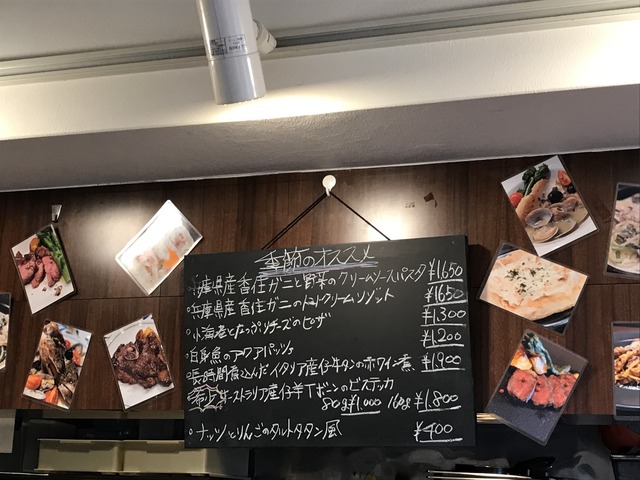 季節のオススメ
兵庫県産香住ガニと野菜のクリームソースパスタ ¥1650
兵庫県産香住ガニのトマトクリームリゾット ¥1650
小海老とたっぷりチーズのピザ ¥1300
白身魚のアクアパッツァ ¥1200
長時間煮込んだイタリア産仔牛タンの赤ワイン煮 ¥1900
オーストラリア産仔羊Tボーンのビステッカ
80g ¥1.000 160g ¥1.800
ナッツとりんごのタルトタタン風 ¥400